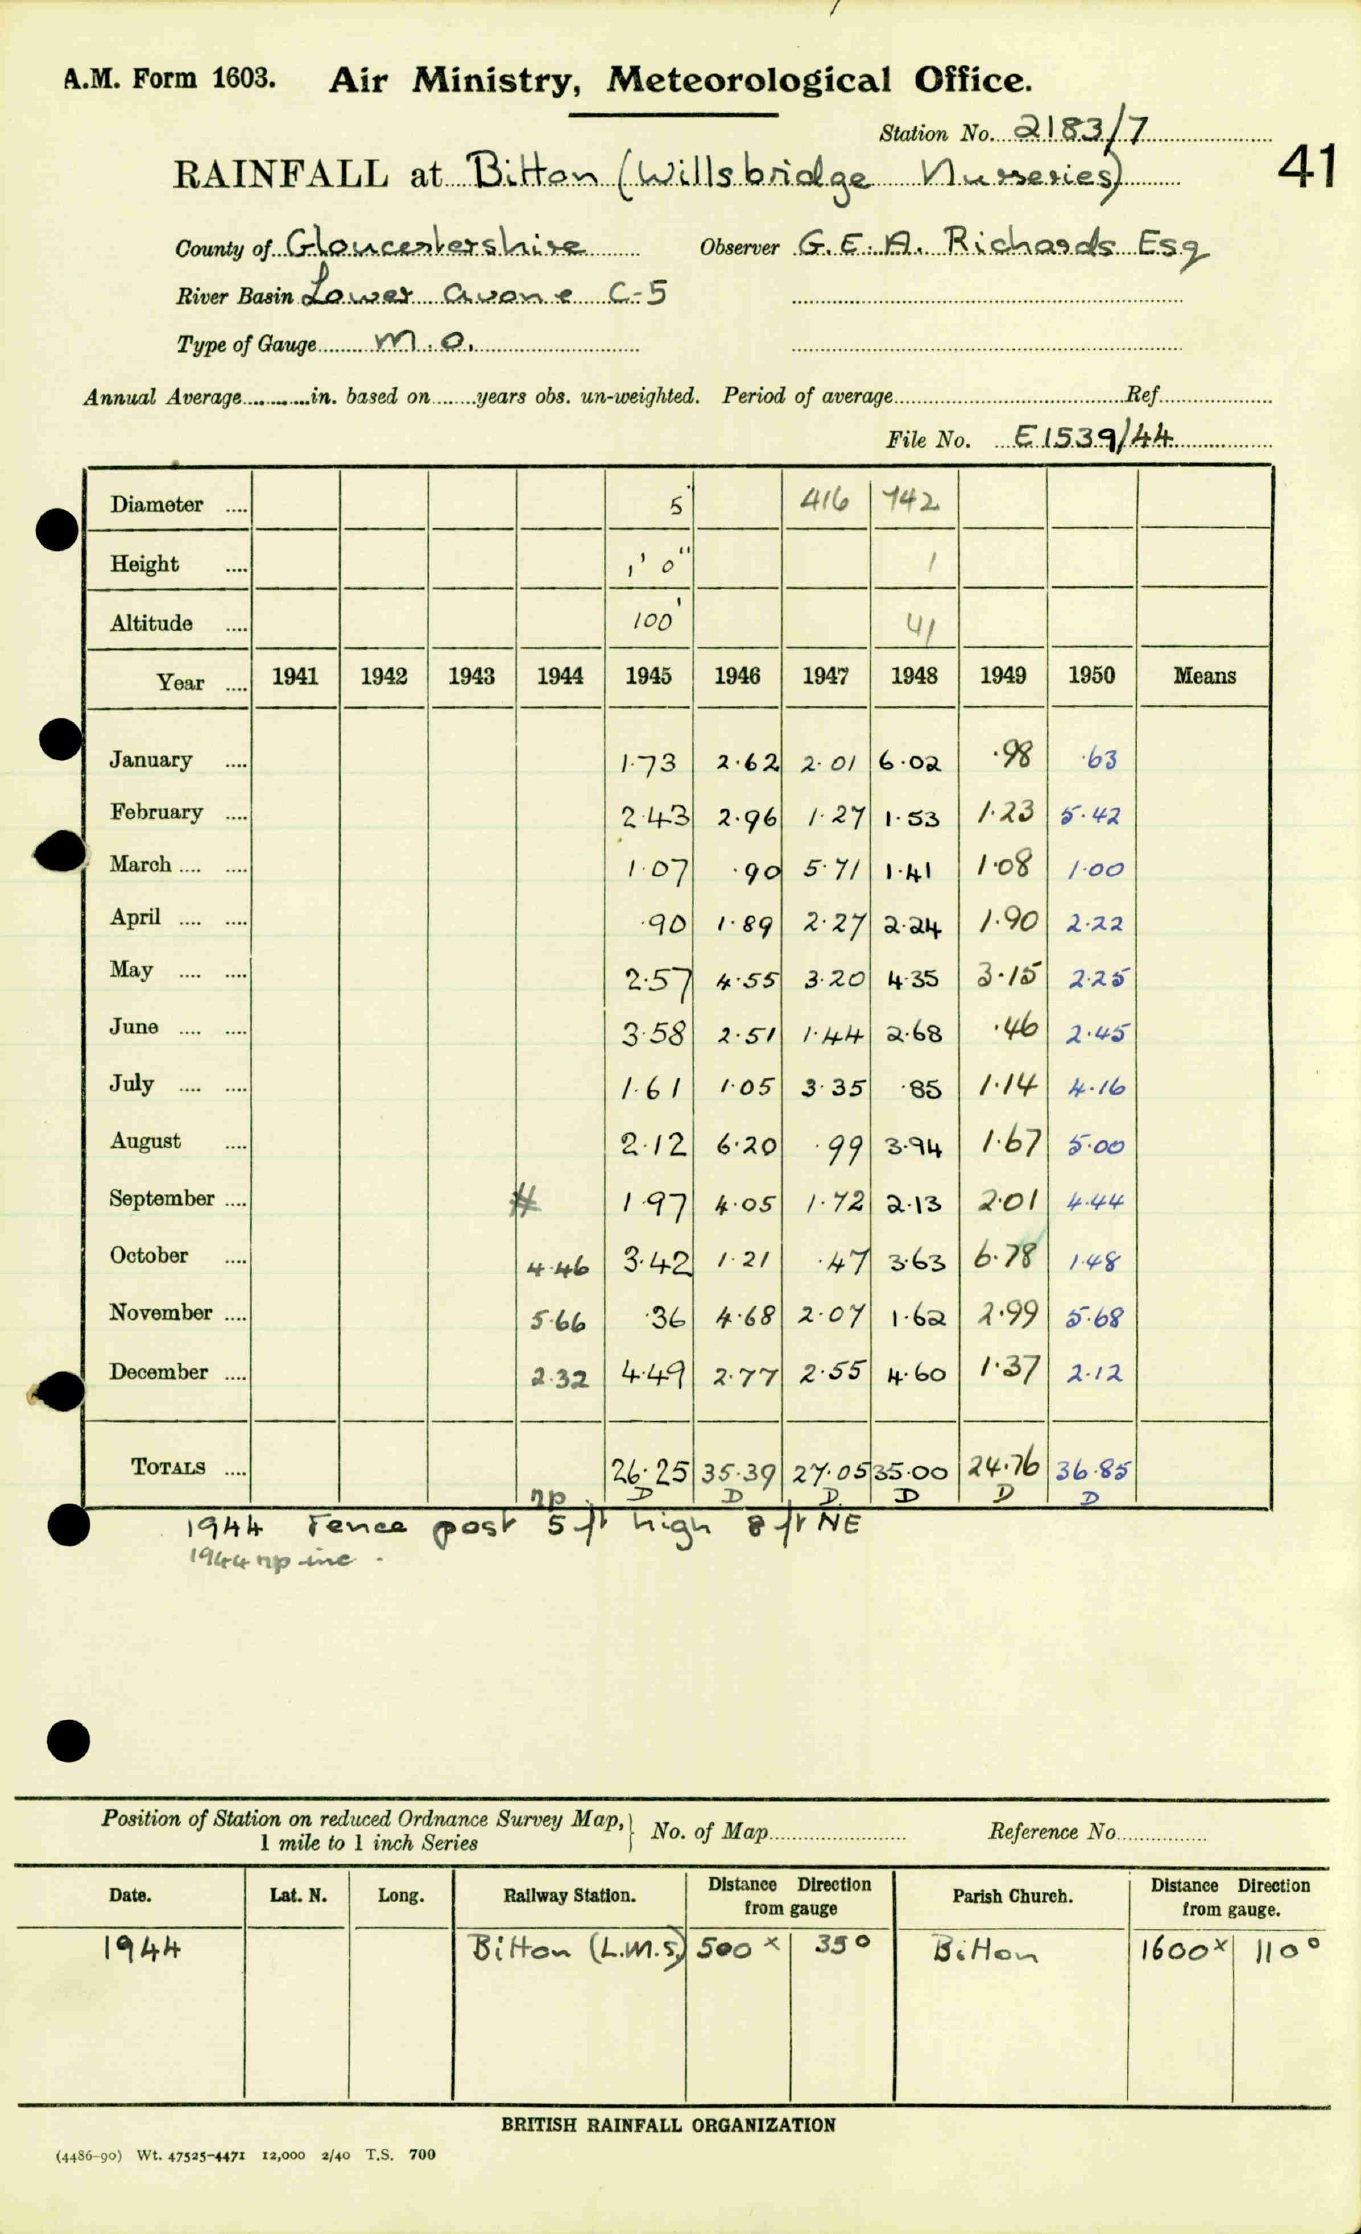 A.M. Form 1603. Air Ministry, Meteorological Office.
Station No. 2183/7
41
RAINFALL at Bitton (Willsbridge Nurseries)
County of Gloucestershire Observer G.E.A. Richards Esq
River Basin Lower Avon e C-5
Type of Gauge M.O.
Annual Average in. based on years obs. un-weighted. Period of average Ref
File No. E1539/44
Diameter 5 416 742
Height 1' 0" 1
Altitude 100' 41
Year 1941 1942 1943 1944 1945 1946 1947 1948 1949 1950 Means
January 1.73 2.62 2.01 6.02 .98 .63
February 2.43 2.96 1.27 1.53 1.23 5.42
March 1.07 .90 5.71 1.41 1.08 1.00
April .90 1.89 2.27 2.24 1.90 2.22
May 2.57 4.55 3.20 4.35 3.15 2.25
June 3.58 2.51 1.44 2.68 .46 2.45
July 1.61 1.05 3.35 .85 1.14 4.16
August 2.12 6.20 .99 3.94 1.67 5.00
September # 1.97 4.05 1.72 2.13 2.01 4.44
October 4.46 3.42 1.21 .47 3.63 6.78 1.48
November 5.66 .36 4.68 2.07 1.62 2.99 5.68
December 2.32 4.49 2.77 2.55 4.60 1.37 2.12
TOTALS 26.25 35.39 27.05 35.00 24.76 36.85
np D D D D D D
1944 Fence post 5 ft high 8 ft NE
1944 np inc.
Position of Station on reduced Ordnance Survey Map, 1 mile to 1 inch Series No. of Map Reference No.
Date. Lat. N. Long. Railway Station. Distance Direction from gauge Parish Church. Distance Direction from gauge.
1944 Bitton (L.M.S) 500 x 35° Bitton 1600 x 110°
BRITISH RAINFALL ORGANIZATION
(4486-90) Wt. 47525-4471 12,000 2/40 T.S. 700